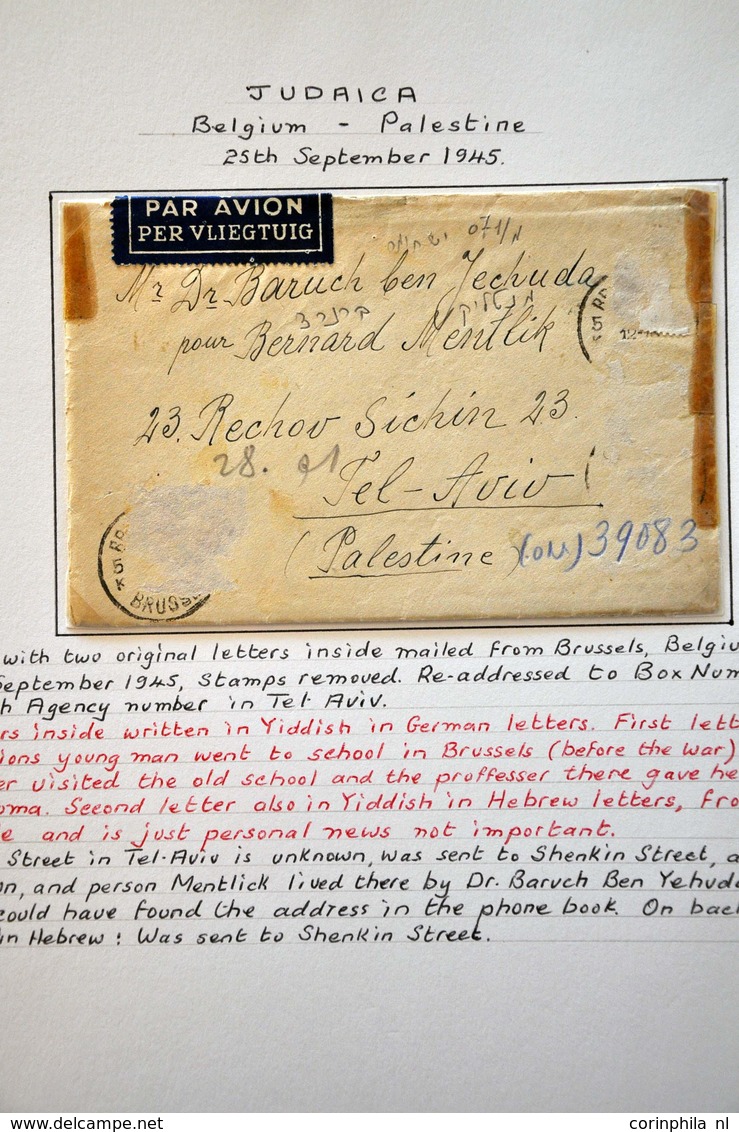 JUDAICA
Belgium - Palestine
25th September 1945.
PAR AVION
PER VLIEGTUIG
Mr Dr. Baruch ben Jechuda
ברנרד מנטליק
pour Bernard Mentlik
23. Rechov Sichin 23.
28.
Tel-Aviv
(Palestine)
39083
BRUSS
12
with two original letters inside mailed from Brussels, Belgiu
September 1945, Stamps removed. Re-addressed to Box Num
h Agency number in Tel-Aviv.
rs inside written in Yiddish in German letters. First lett
ions young man went to school in Brussels (before the war)
er visited the old school and the proffesser there gave he
oma. Second letter also in Yiddish in Hebrew letters, fro
e and is just personal news not important.
Street in Tel-Aviv is unknown, was sent to Shenkin Street, a
n, and person Mentlick lived there by Dr. Baruch Ben Yehuda
could have found the address in the phone book. On back
in Hebrew: Was sent to Shenkin Street.
corinphila nl